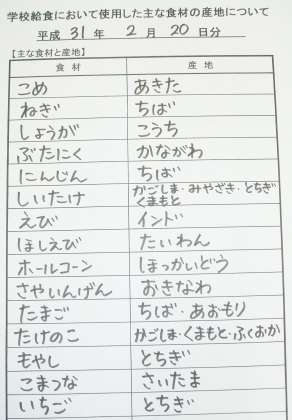 学校給食において使用した主な食材の産地について
平成 31 年 2 月 20 日分
【主な食材と産地】
食材 産地
こめ あきた
ねぎ ちば
しょうが こうち
ぶたにく かながわ
にんじん ちば
しいたけ かごしま・みやざき・とちぎ
くまもと
えび インド
ほしえび たいわん
ホールコーン ほっかいどう
さやいんげん おきなわ
たまご ちば・あおもり
たけのこ かごしま・くまもと・ふくおか
もやし とちぎ
こまつな さいたま
いちご とちぎ